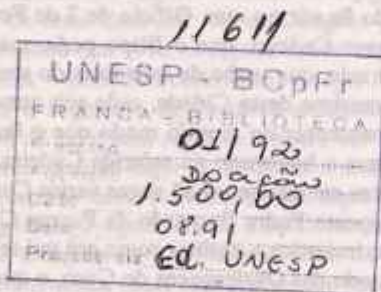 11611
UNESP - BCpFr
FRANCA - BIBLIOTECA
01/92
Doação
1.500,00
08.91
Ed. UNESP